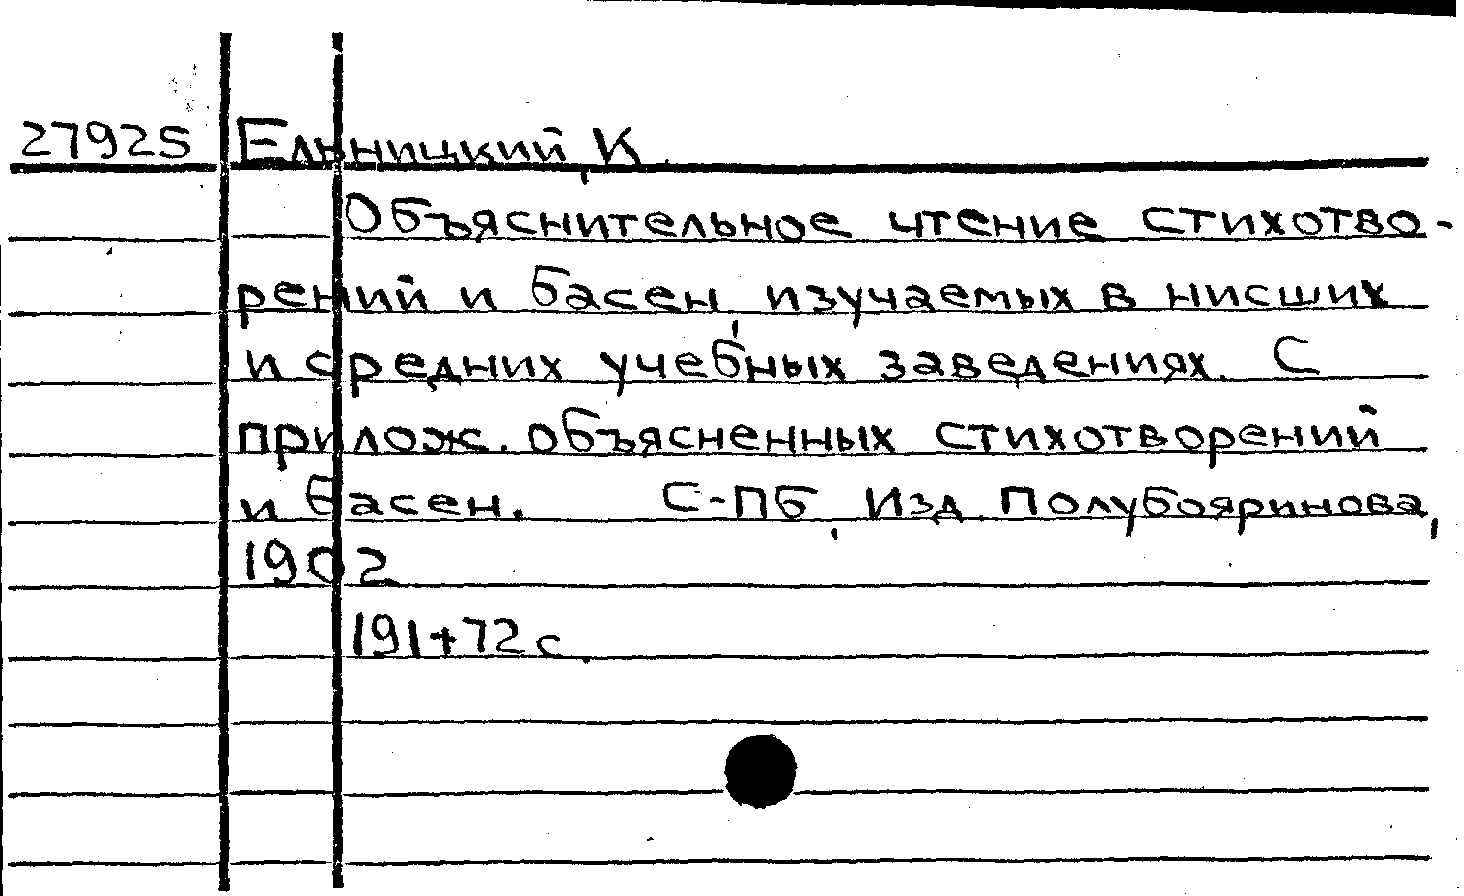 27925 Ельницкий, К.
Объяснительное чтение стихотво-
рений и басен, изучаемых в нисших
и средних учебных заведениях. С
прилож. объясненных стихотворений
и басен. С-ПБ, Изд. Полубояринова,
1902
191+72 с.